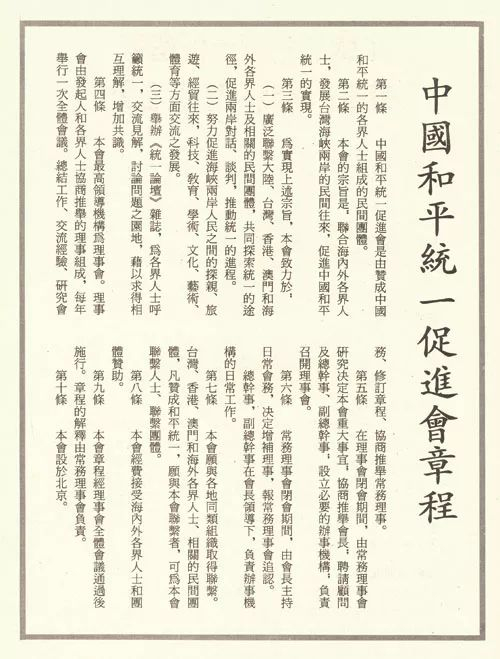 中國和平統一促進會章程
第一條　中國和平統一促進會是由贊成中國
和平統一的各界人士組成的民間團體。
第二條　本會的宗旨是，聯合海內外各界人
士，發展台灣海峽兩岸的民間往來，促進中國和平
統一的實現。
第三條　爲實現上述宗旨，本會致力於，
（一）廣泛聯繫大陸、台灣、香港、澳門和海
外各界人士及相關的民間團體，共同探索統一的途
徑，促進兩岸對話、談判，推動統一的進程。
（二）努力促進海峽兩岸人民之間的探親、旅
遊、經貿往來，科技、教育、學術、文化、藝術、
體育等方面交流之發展。
（三）舉辦《統一論壇》雜誌，爲各界人士呼
籲統一，交流見解，討論問題之園地，藉以求得相
互理解，增加共識。
第四條　本會最高領導機構爲理事會。理事
會由發起人和各界人士協商推舉的理事組成，每年
舉行一次全體會議。總結工作、交流經驗、研究會
務、修訂章程、協商推舉常務理事。
第五條　在理事會閉會期間，由常務理事會
研究決定本會重大事宜，協商推舉會長，聘請顧問
及總幹事、副總幹事，設立必要的辦事機構，負責
召開理事會。
第六條　常務理事會閉會期間，由會長主持
日常會務，決定增補理事，報常務理事會追認。
總幹事，副總幹事在會長領導下，負責辦事機
構的日常工作。
第七條　本會願與各地同類組織取得聯繫。
台灣、香港、澳門和海外各界人士、相關的民間團
體，凡贊成和平統一，願與本會聯繫者，可爲本會
聯繫人士、聯繫團體。
第八條　本會經費接受海內外各界人士和團
體贊助。
第九條　本會章程經理事會全體會議通過後
施行。章程的解釋由常務理事會負責。
第十條　本會設於北京。